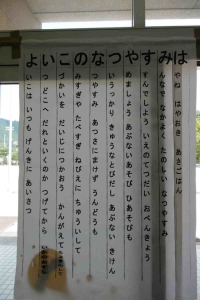 よいこのなつやすみは
やね はやおき あさごはん
んなで なかよく たのしい なつやすみ
すんでしよう いえのてつだい おべんきょう
めましょう あぶないあそび ひあそびも
いうっかり きゅうなとびだし あぶない きけん
つやすみ あつさにまけず うんどうも
みすぎや たべすぎ ねびえに ちゅういして
づかいを だいじにつかおう かんがえて
つどこへ だれといくのか つげてから
いこは いつも げんきに あいさつ